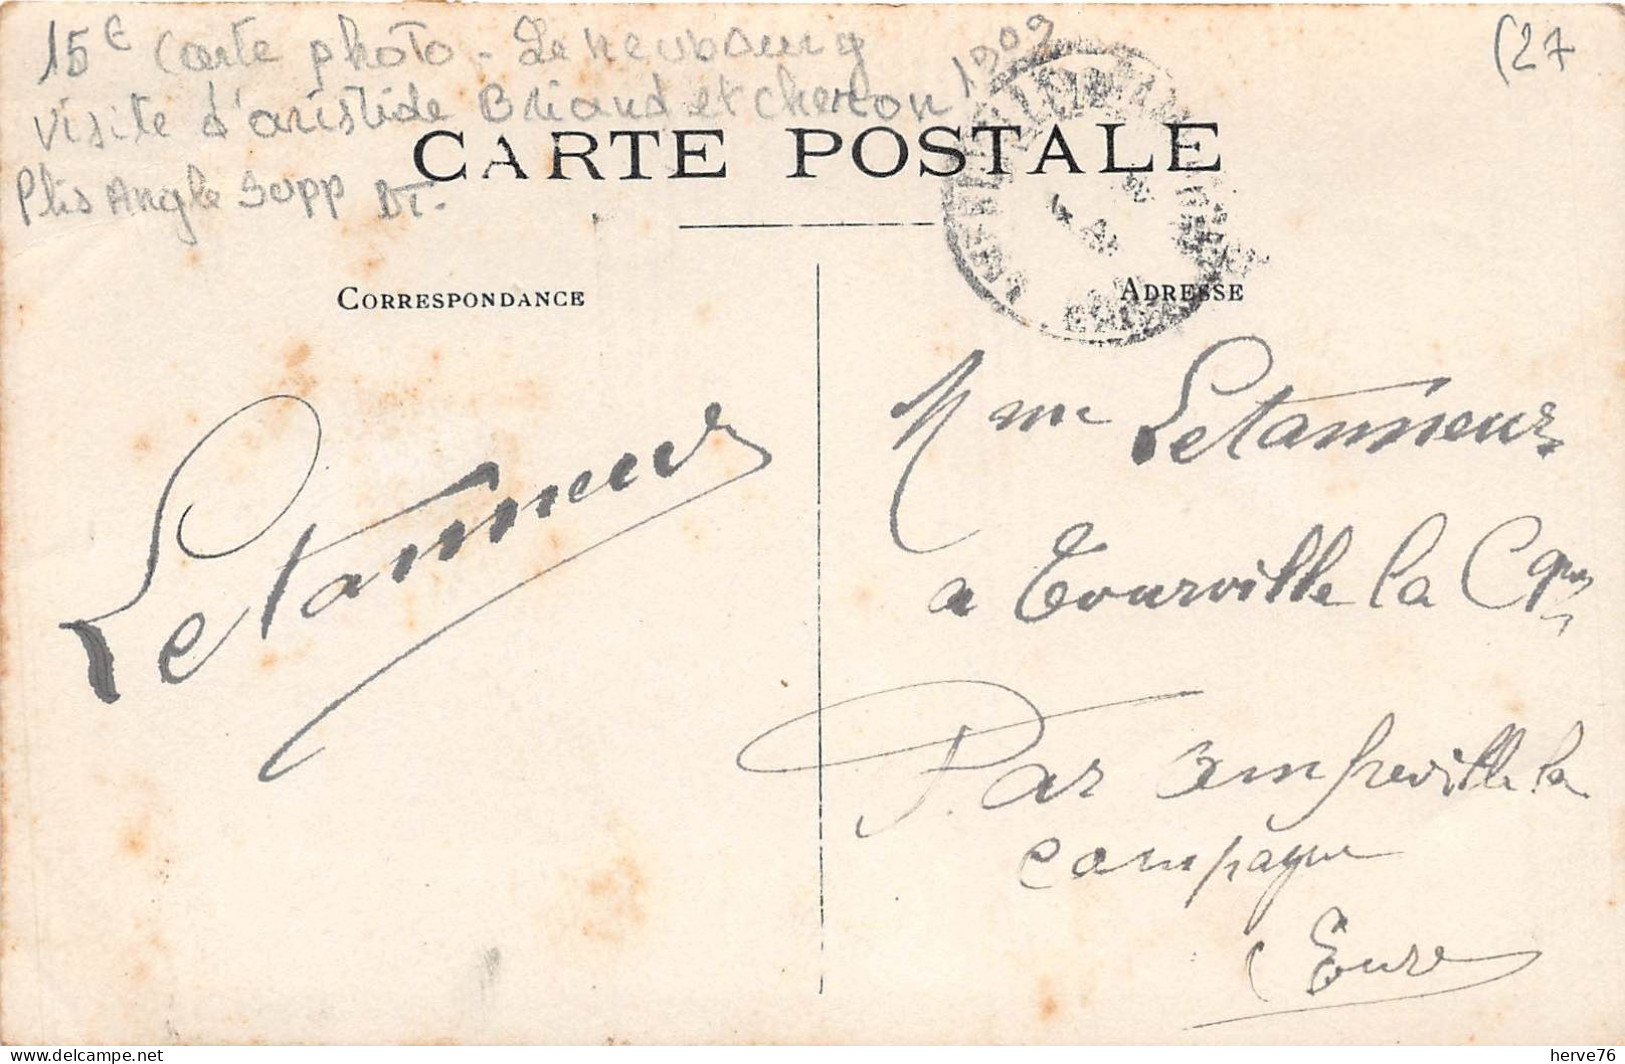 15€ Carte photo - Le neubourg
(27
visite d'aristide Briand et Cheron 1909
Plis Angle Supp DT.
CARTE POSTALE
CORRESPONDANCE
ADRESSE
Mme Letanneur
Letanneur
a Tourville la Cgne
Par amfreville la
campagne
(Eure
herve76